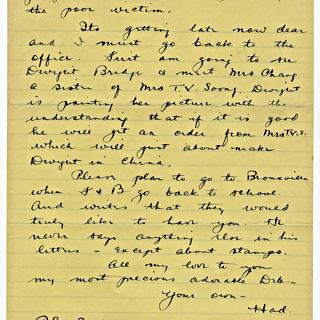 the poor victim.
Its getting late now dear
and I must go back to the
office. Just am going to see
Dwight Bridge & meet Mrs Chang
a sister of Mrs T.V. Soong. Dwight
is painting her picture with the
understanding that if it is good
he will get an order from Mrs T.V.S.
which will just about make
Dwight in China.
Please plan to go to Bronxville
when J & B go back to school.
And writes that they would
truly like to have you. He
never says anything else in his
letters - except about stamps.
All my love to you
my most precious adorable Deb-
Your own-
Had.